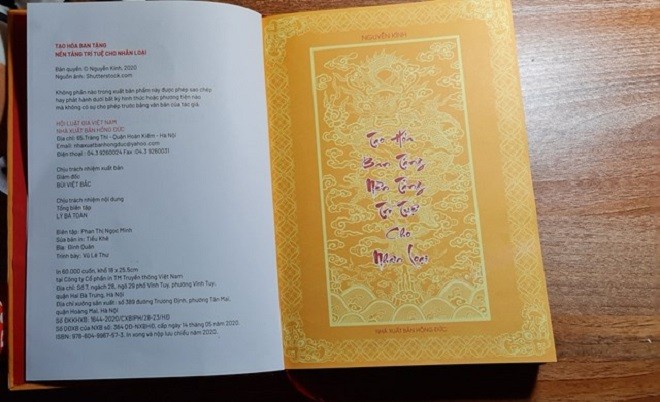 TẠO HÓA BAN TẶNG
NỀN TẢNG TRÍ TUỆ CHO NHÂN LOẠI
Bản quyền: © Nguyễn Kính, 2020
Nguồn ảnh: Shutterstock.com
Không phần nào trong xuất bản phẩm này được phép sao chép
hay phát hành dưới bất kỳ hình thức hoặc phương tiện nào
mà không có sự cho phép trước bằng văn bản của tác giả.
HỘI LUẬT GIA VIỆT NAM
NHÀ XUẤT BẢN HỒNG ĐỨC
Địa chỉ: 65, Tràng Thi - Quận Hoàn Kiếm - Hà Nội
Email: nhaxuatbanhongduc@yahoo.com
Điện thoại: 04.3 9260024 Fax: 04.3 9260031
Chịu trách nhiệm xuất bản
Giám đốc
BÙI VIỆT BẮC
Chịu trách nhiệm nội dung
Tổng biên tập
LÝ BÁ TOÀN
Biên tập: Phan Thị Ngọc Minh
Sửa bản in: Tiểu Khê
Bìa: Đình Quân
Trình bày: Vũ Lê Thư
In 60.000 cuốn, khổ 18 x 25.5cm
tại Công ty Cổ phần in TM Truyền thông Việt Nam
Địa chỉ: Số 7, ngách 28, ngõ 29 phố Vĩnh Tuy, phường Vĩnh Tuy,
quận Hai Bà Trưng, Hà Nội
Địa chỉ xưởng sản xuất: số 389 đường Trương Định, phường Tân Mai,
quận Hoàng Mai, Hà Nội
Số ĐKXHXB: 1644-2020/CXBIPH/28-23/HĐ
Số QĐXB của NXB số: 364 QĐ-NXBHĐ, cấp ngày 14 tháng 05 năm 2020.
In xong và nộp lưu chiểu năm 2020.
NGUYỄN KÍNH
Tạo Hóa
Ban Tặng
Nền Tảng
Trí Tuệ
Cho
Nhân Loại
NHÀ XUẤT BẢN HỒNG ĐỨC